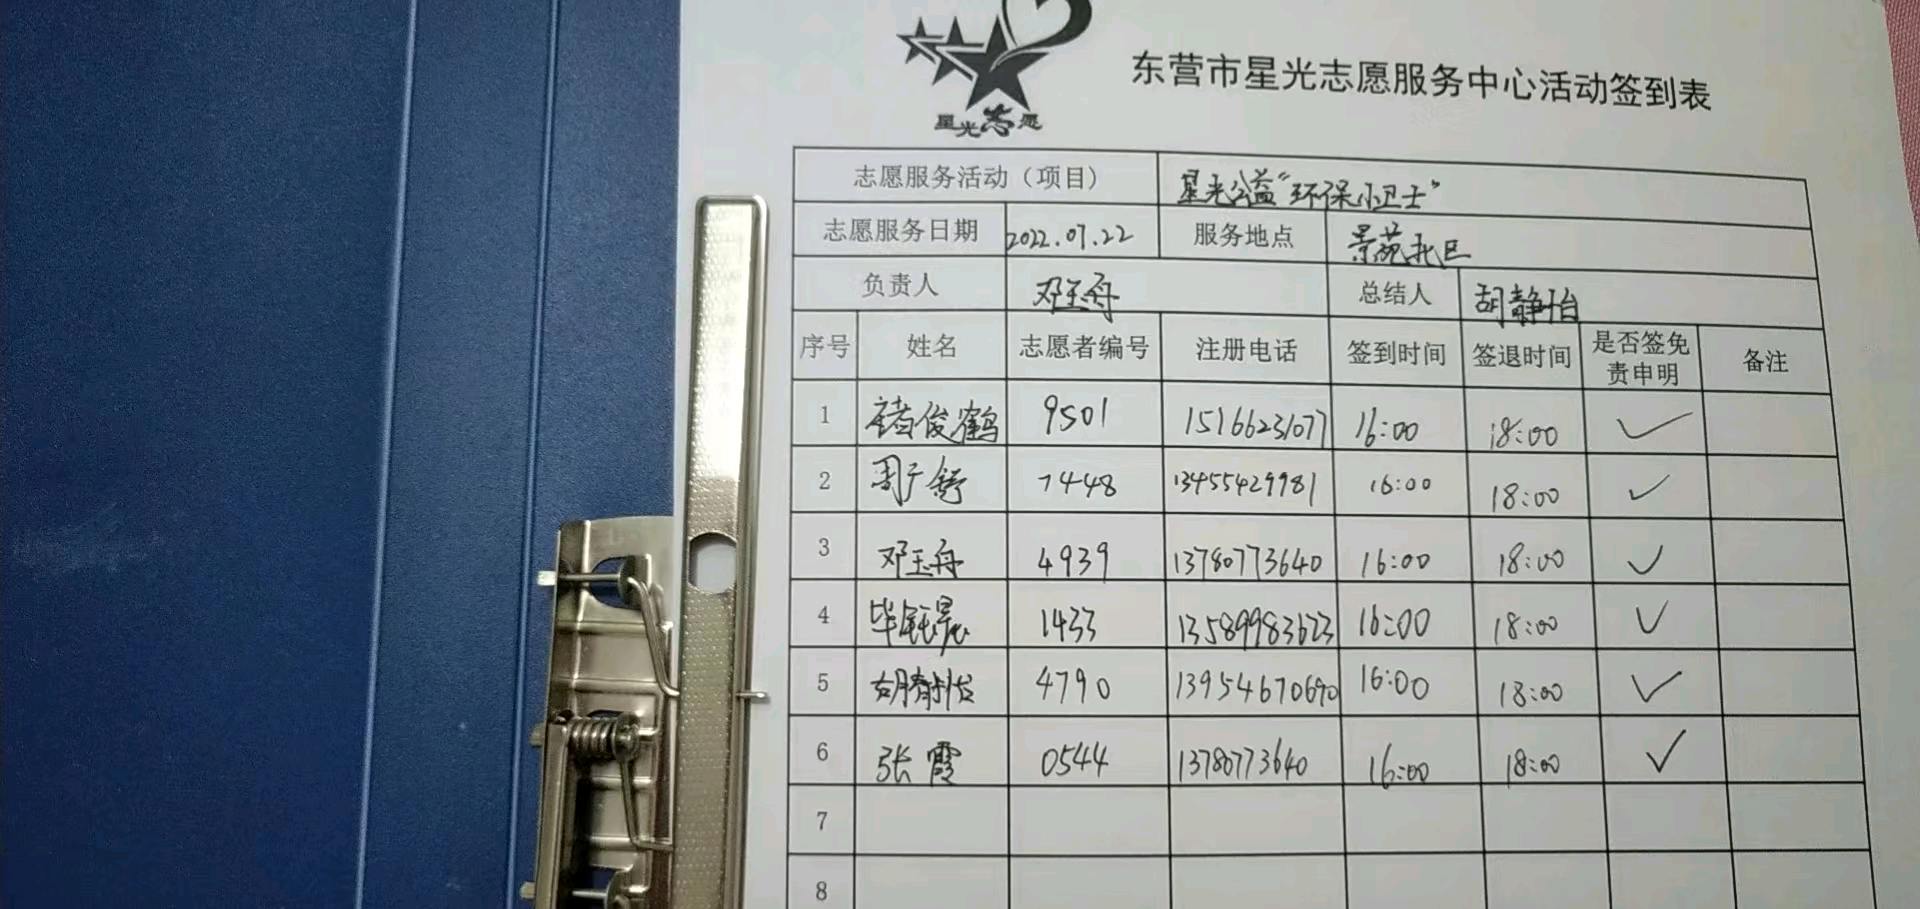 星光志愿
东营市星光志愿服务中心活动签到表
志愿服务活动（项目） 星光公益“环保小卫士”
志愿服务日期 2022.07.22 服务地点 景苑社区
负责人 邓玉舟 总结人 胡静怡
序号 姓名 志愿者编号 注册电话 签到时间 签退时间 是否签免责申明 备注
1 褚俊鹤 9501 15166231077 16:00 18:00 ✓
2 周广舒 7448 13455429981 16:00 18:00 ✓
3 邓玉舟 4939 13780773640 16:00 18:00 ✓
4 毕钰晨 1433 13589983623 16:00 18:00 ✓
5 胡静怡 4790 13954670690 16:00 18:00 ✓
6 张霞 0544 13780773640 16:00 18:00 ✓
7
8